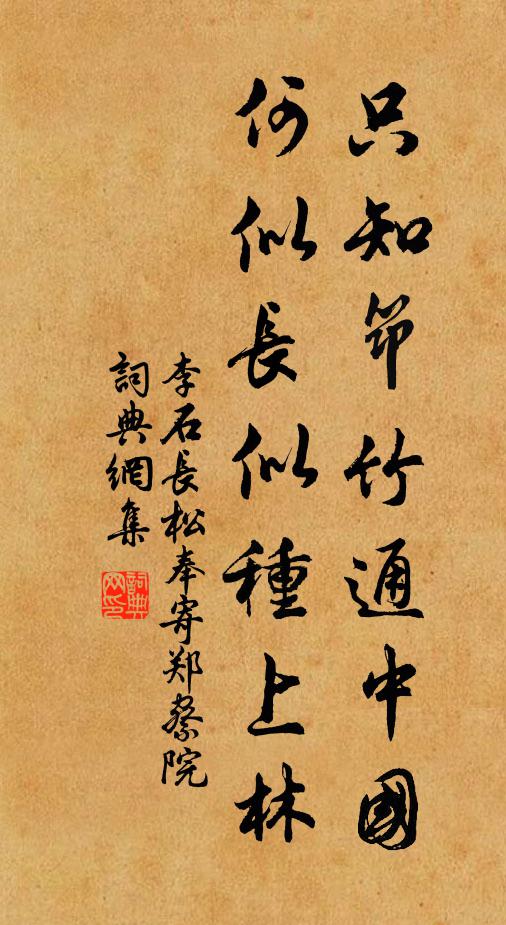 只知筇竹通中國
何似長似種上林
李石長松奉寄郑察院
詞典網集
詞典网印